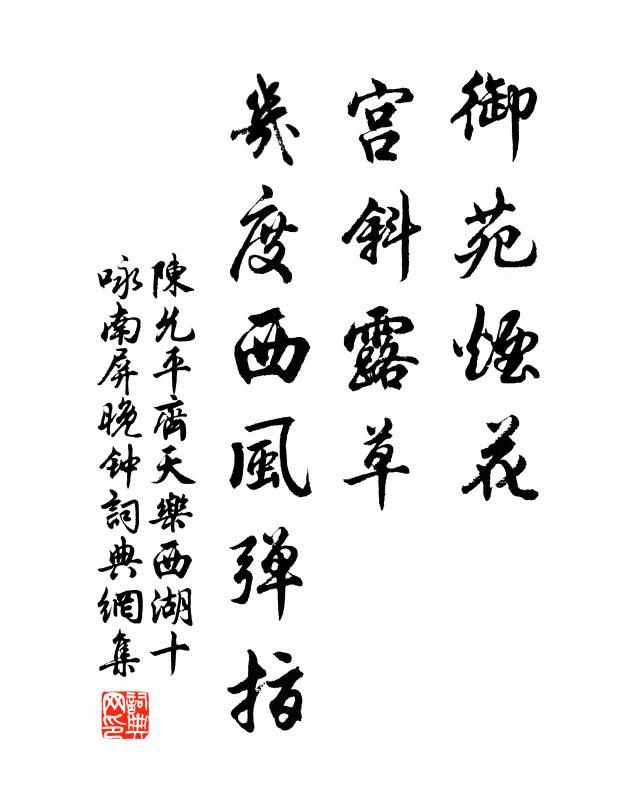 御苑煙花
宫斜露草
幾度西風弹指
陳允平齊天樂西湖十
咏南屏晚钟詞典網集
詞典網印